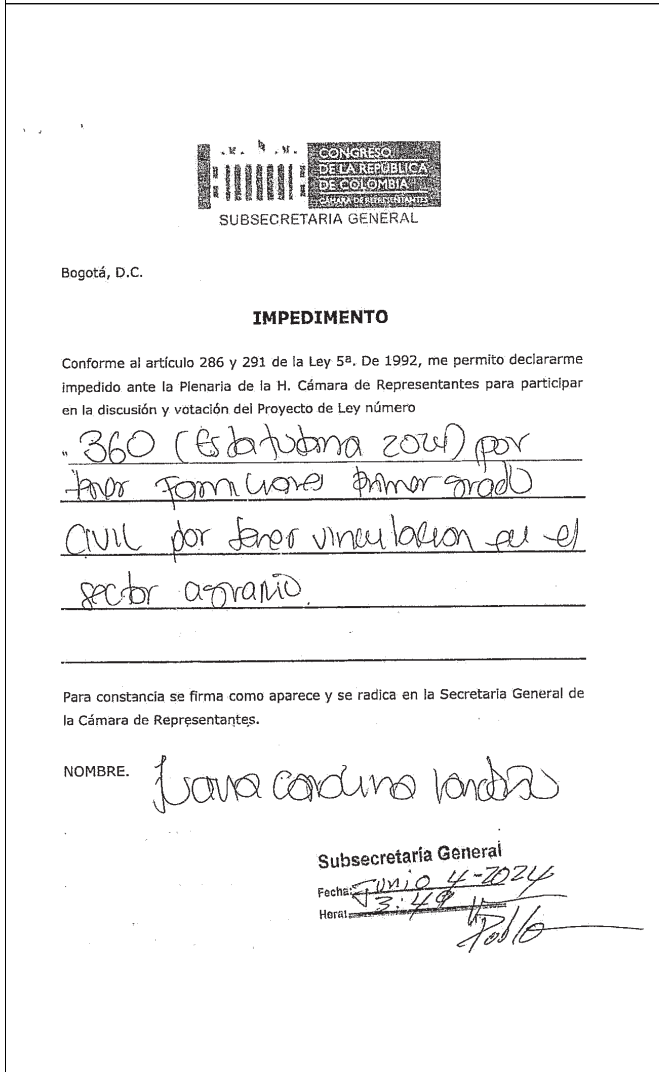 CONGRESO
DE LA REPÚBLICA
DE COLOMBIA
CÁMARA DE REPRESENTANTES
SUBSECRETARIA GENERAL
Bogotá, D.C.
IMPEDIMENTO
Conforme al artículo 286 y 291 de la Ley 5ª. De 1992, me permito declararme
impedido ante la Plenaria de la H. Cámara de Representantes para participar
en la discusión y votación del Proyecto de Ley número
" 360 (Estatutaria 2024) por
tener Familiares primer grado
CIVIL por tener vinculacion en el
sector agrario.
Para constancia se firma como aparece y se radica en la Secretaria General de
la Cámara de Representantes.
NOMBRE. Juana Carolina Londoño
Subsecretaría General
Fecha: Junio 4-2024
Hora: 3:49
Pablo